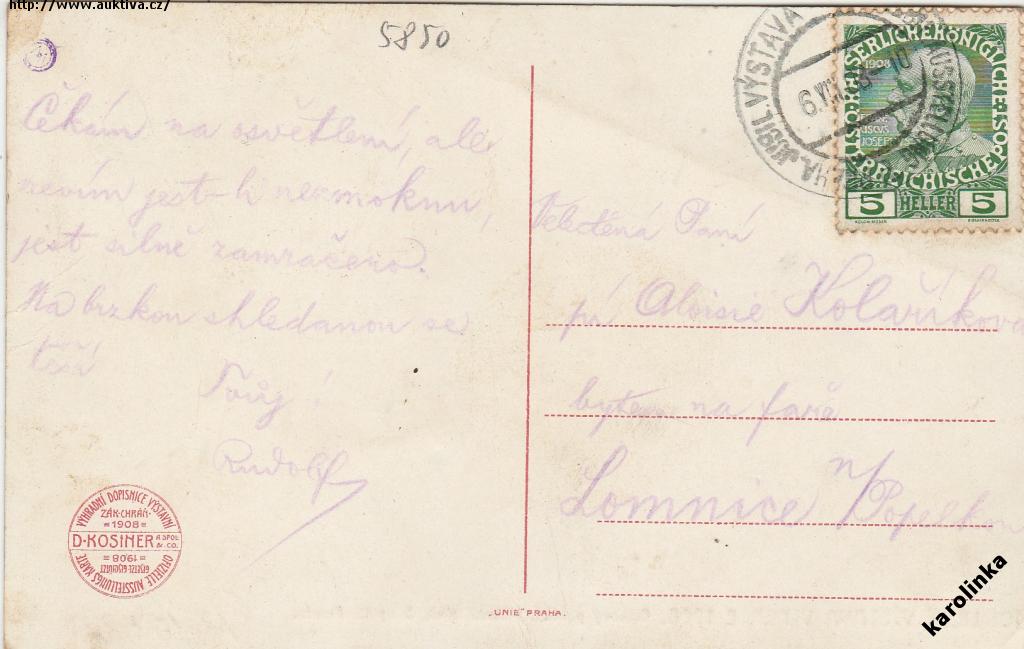 http://www.auktiva.cz/
5850
Čekám na osvětlení, ale
nevím jest-li nezmoknu,
jest silně zamračeno.
Na brzkou shledanou se
těší Tvůj!
Rudolf
VÝHRADNÍ DOPISNICE VÝSTAVNÍ
ZÁK·CHRÁN·
1908
D·KOSINER A SPOL. & CO.
1908
GESETZL·GESCHÜTZT
OFFIZIELLE AUSSTELLUNGS KARTE
„UNIE" PRAHA.
JUBIL. VÝSTAVA
6.VIII. 8-10
AUSSTELLUNG
KAISERLICHEKÖNIGLICHEÖSTERREICHISCHE
1908
JOSEF I
5 HELLER 5
Velectěná Paní
pí Aloisie Kolaříková
bytem na faře
Lomnice n/Popelkou
karolinka